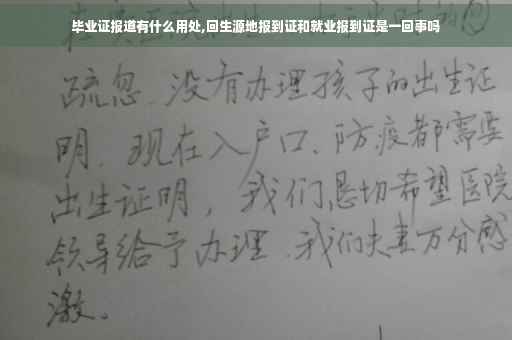 毕业证报道有什么用处,回生源地报到证和就业报到证是一回事吗
疏忽、没有办理孩子的出生证
明、现在入户口、防疫都需要
出生证明，我们恳切希望医院
领导给予办理、我们夫妻万分感
激。